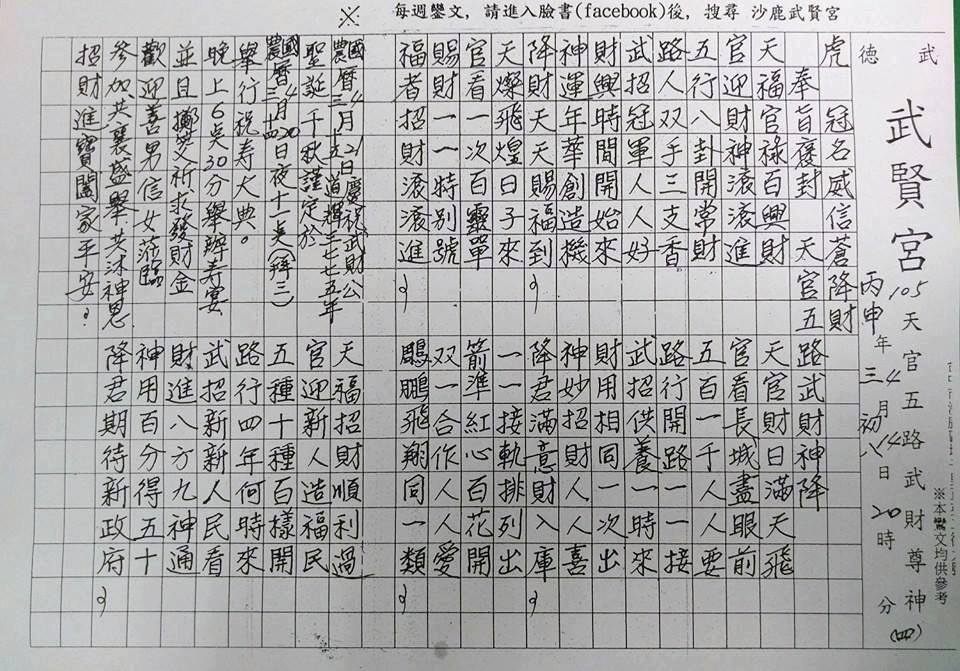 ※ 每週鑾文，請進入臉書(facebook)後，搜尋 沙鹿武賢宮
武德
武賢宮 105 天官五路武財尊神 (四)
丙申年三4月初八14日20時 分
※本鸞文均供參考
虎冠名威信蒼降財
奉旨褒封 天官五路武財神降
天福官祿百興財
官迎財神滾滾進
五行八卦開常財
路人双手三支香
武招冠軍人人好
財興時間開始來
神運年華創造機
降財天天賜福到
天燦飛煌日子來
官看一次百靈單
賜財一一特別號
福者招財滾滾進
天官財日滿天飛
官看長城盡眼前
五百一千人人要
路行開路一一接
武招供養一時來
財用相同一次出
神妙招財人人喜
降君滿意財入庫
一一接軌排列出
箭準紅心百花開
双一合作人人愛
鵬飛翔同一類
國農曆三4月21十五日慶祝武財公道輝三七七五年
聖誕千秋謹定於
國農曆4月20日夜十一点(拜三)
舉行祝寿大典。
晚上6点30分舉辦寿宴
並且擲筊祈求發財金
歡迎善男信女蒞臨
參加共襄盛舉共沐神恩
招財進寶闔家平安。
天福招財順利過
官迎新人造福民
五種十種百樣開
路行四年何時來
武招新新人民看
財進八方九神通
神用百分得五十
降君期待新政府